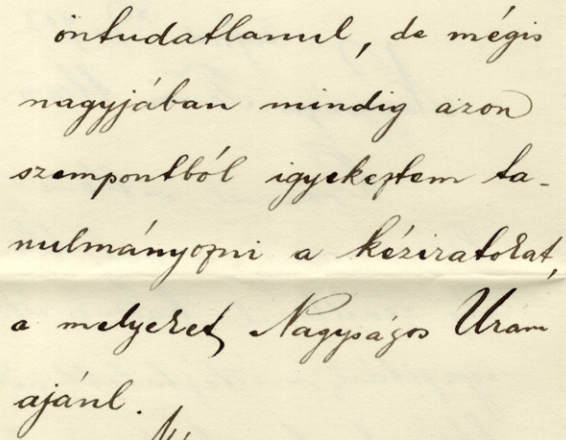 öntudatlanul, de mégis
nagyjában mindig azon
szempontból igyekeztem ta-
nulmányozni a kéziratokat,
a melyeket Nagyságos Uram
ajánl.